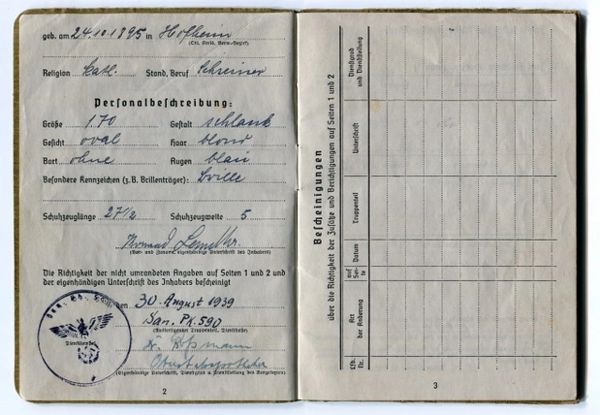 geb. am 24.10.1895 in Hofheim
(Ort, Kreis, Verw.-Bezirk)
Religion kath. Stand, Beruf Schreiner
Personalbeschreibung:
Größe 1.70 Gestalt schlank
Gesicht oval Haar blond
Bart ohne Augen blau
Besondere Kennzeichen (z. B. Brillenträger): Brille
Schuhzeuglänge 27½ Schuhzeugweite 5
Konrad
(Vor- und Zuname, eigenhändige Unterschrift des Inhabers)
Die Richtigkeit der nicht umrandeten Angaben auf Seiten 1 und 2 und
der eigenhändigen Unterschrift des Inhabers bescheinigt
den 30. August 1939
San. Pk. 590
(Ausfertigender Truppenteil, Dienststelle)
Dienststempel
Dr.
Oberstabsapotheker
(Eigenhändige Unterschrift, Dienstgrad u. Dienststellung des Vorgesetzten)
2
Bescheinigungen
über die Richtigkeit der Zusätze und Berichtigungen auf Seiten 1 und 2
Dienstgrad
und Dienststellung
Unterschrift
Truppenteil
Datum
auf
Sei-
te
Art
der Änderung
Lfd.
Nr.
3